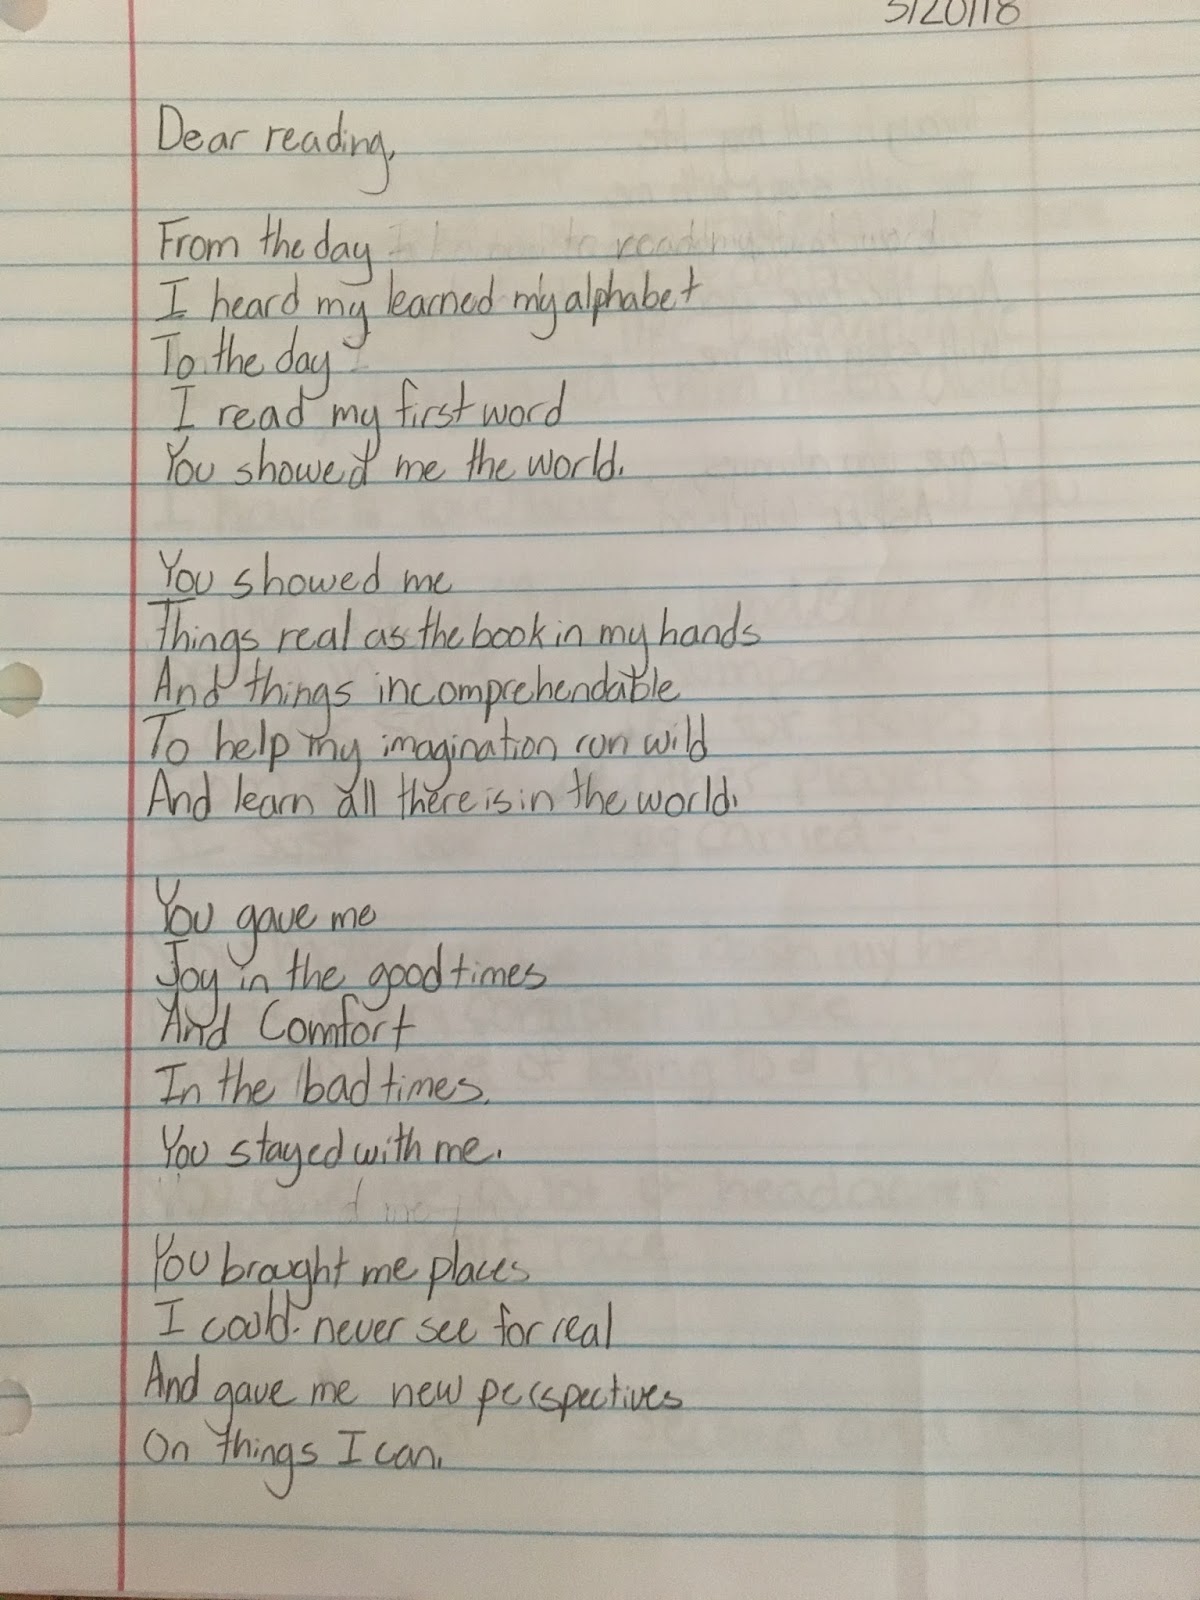 5/20/18
Dear reading,
From the day
I heard my learned my alphabet
To the day
I read my first word
You showed me the world.
You showed me
Things real as the book in my hands
And things incomprehendable
To help my imagination run wild
And learn all there is in the world.
You gave me
Joy in the good times
And Comfort
In the bad times.
You stayed with me.
You brought me places
I could never see for real
And gave me new perspectives
On things I can.